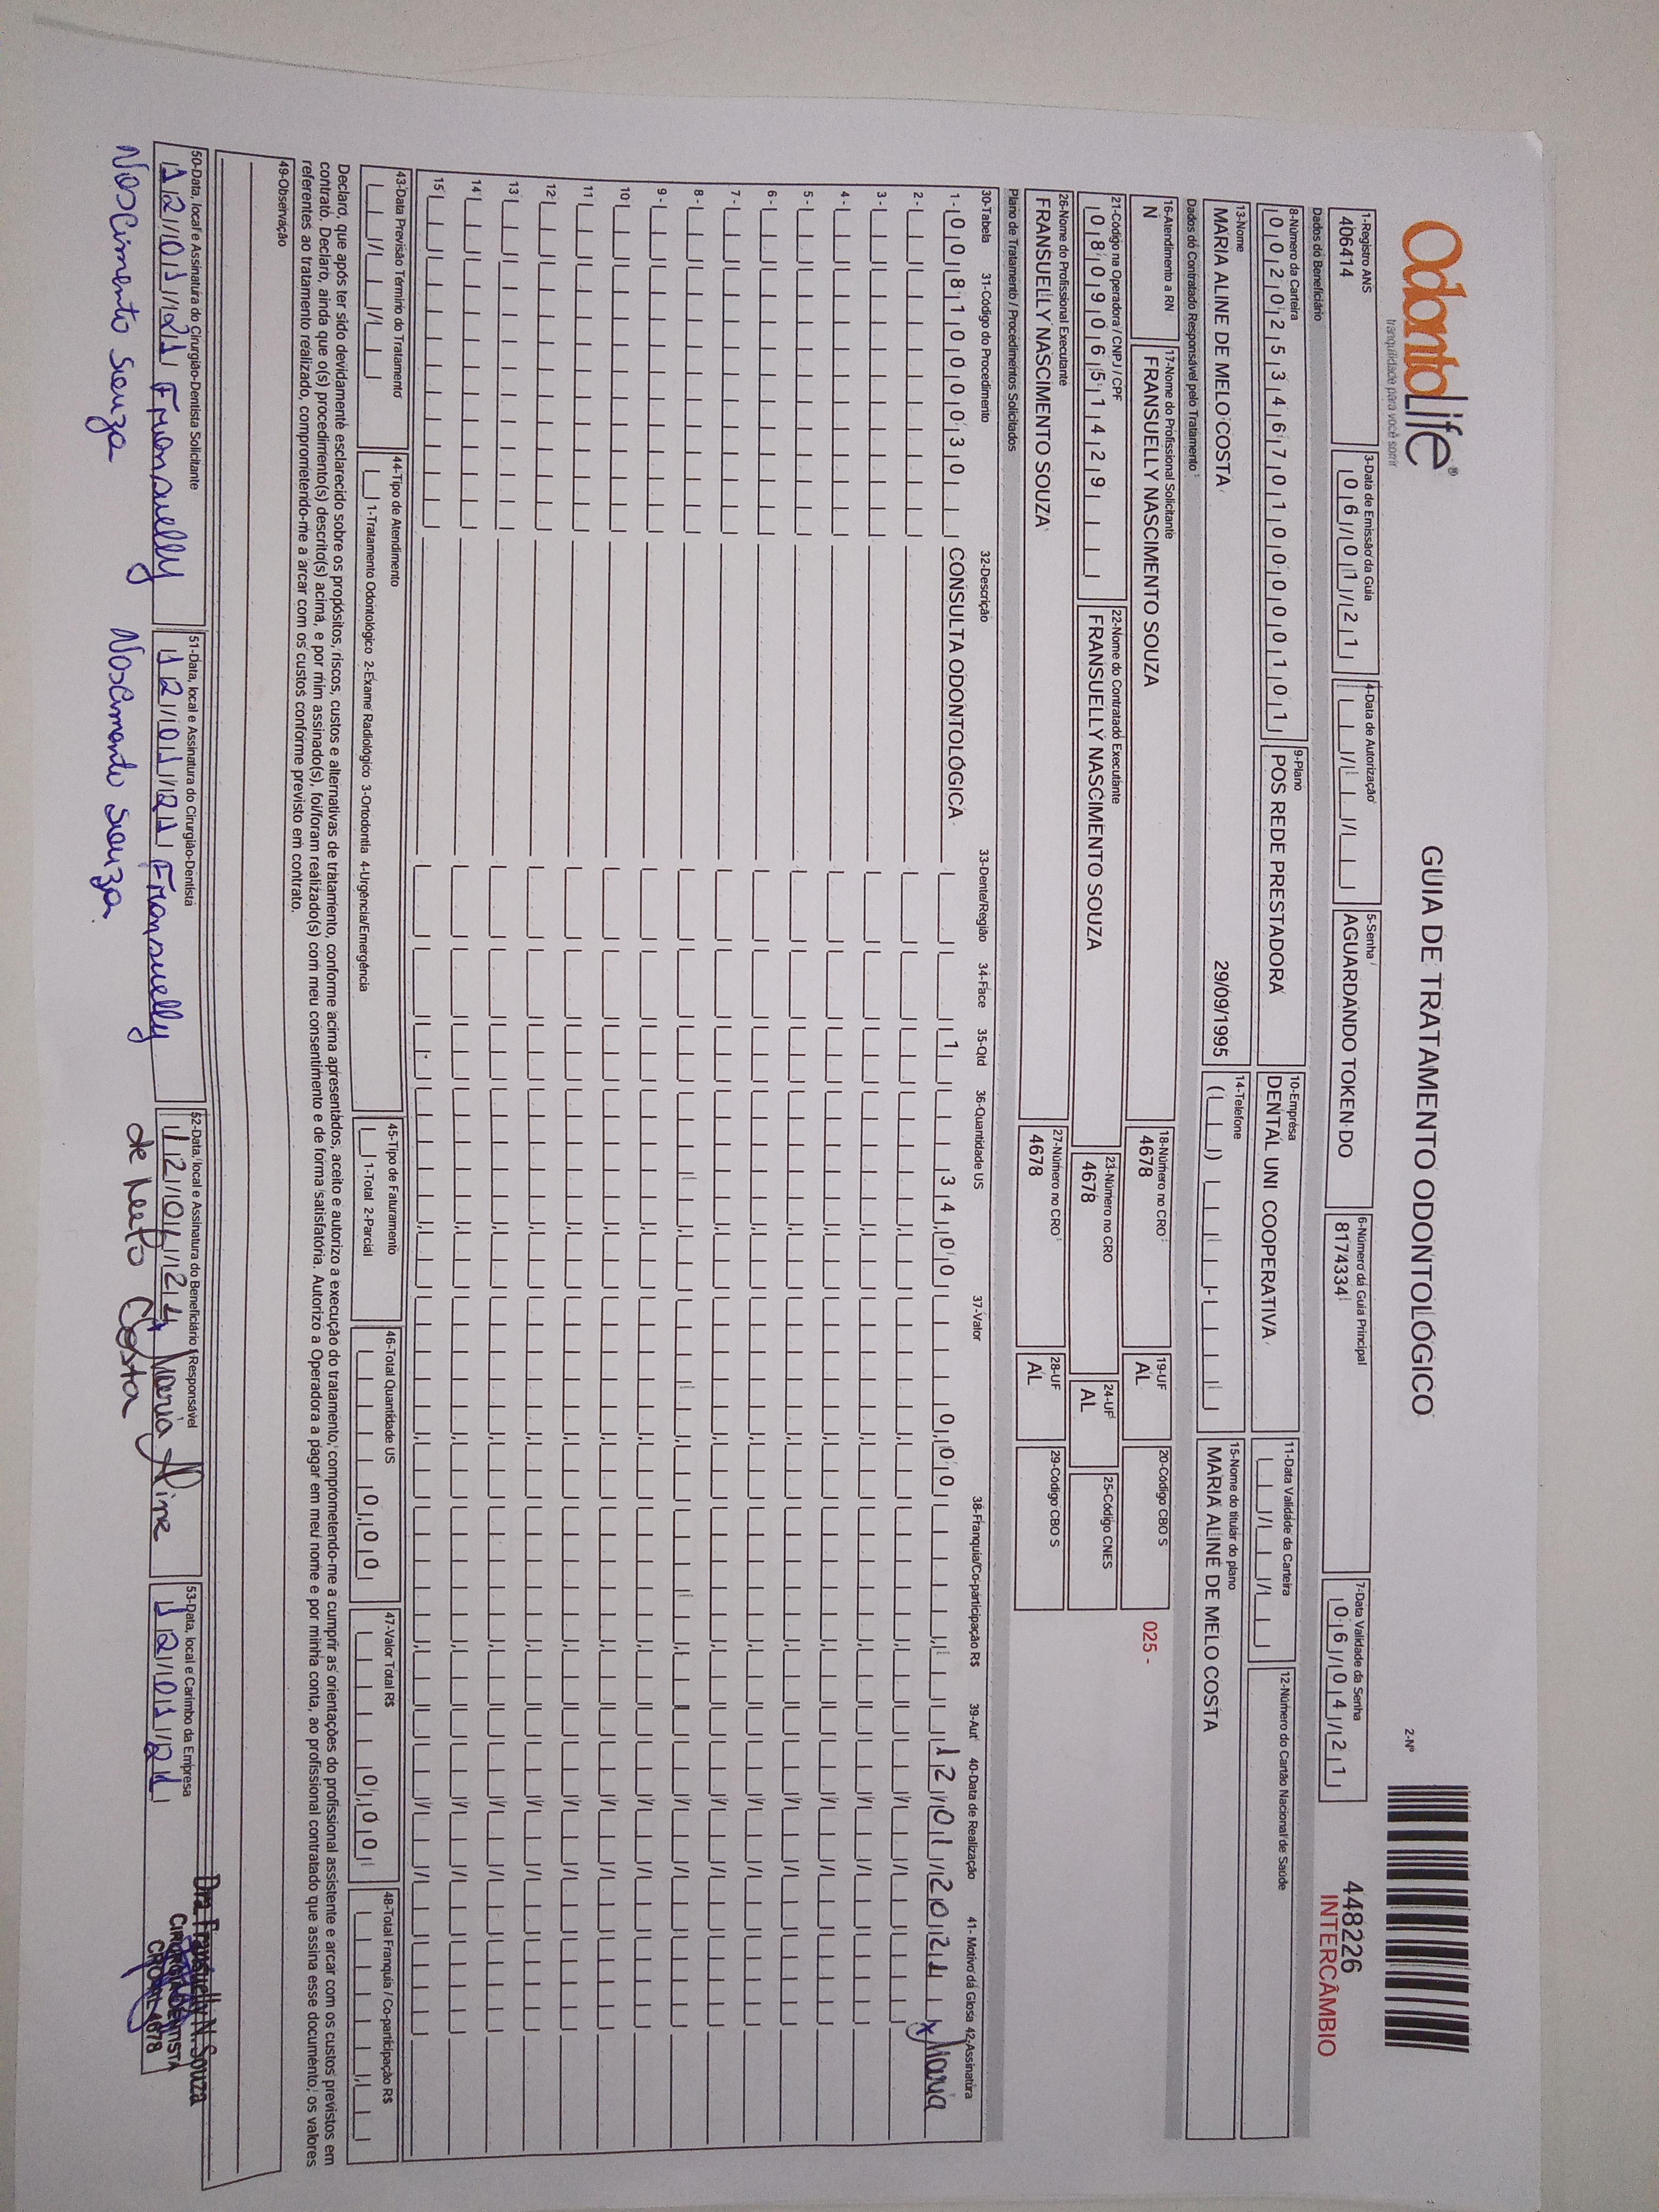 OdontoLife®
tranquilidade para você sorrir
GUIA DE TRATAMENTO ODONTOLÓGICO
2-Nº
448226
INTERCÂMBIO
1-Registro ANS
406414
3-Data de Emissão da Guia
06/01/21
4-Data de Autorização
5-Senha
AGUARDANDO TOKEN DO
6-Número da Guia Principal
8174334
7-Data Validade da Senha
06/04/21
Dados do Beneficiário
8-Número da Carteira
00202534670100000101
9-Plano
POS REDE PRESTADORA
10-Empresa
DENTAL UNI COOPERATIVA
11-Data Validade da Carteira
12-Número do Cartão Nacional de Saúde
13-Nome
MARIA ALINE DE MELO COSTA 29/09/1995
14-Telefone
15-Nome do titular do plano
MARIA ALINE DE MELO COSTA
Dados do Contratado Responsável pelo Tratamento
16-Atendimento a RN
N
17-Nome do Profissional Solicitante
FRANSUELLY NASCIMENTO SOUZA
18-Número no CRO
4678
19-UF
AL
20-Código CBO S
025 -
21-Código na Operadora / CNPJ / CPF
08090651429
22-Nome do Contratado Executante
FRANSUELLY NASCIMENTO SOUZA
23-Número no CRO
4678
24-UF
AL
25-Código CNES
26-Nome do Profissional Executante
FRANSUELLY NASCIMENTO SOUZA
27-Número no CRO
4678
28-UF
AL
29-Código CBO S
Plano de Tratamento / Procedimentos Solicitados
30-Tabela 31-Código do Procedimento 32-Descrição 33-Dente/Região 34-Face 35-Qtd 36-Quantidade US 37-Valor 38-Franquia/Co-participação R$ 39-Aut 40-Data de Realização 41- Motivo da Glosa 42-Assinatura
1- 00 81000030 CONSULTA ODONTOLÓGICA 1 34,00 0,00 12/01/2021 x Maria
2-
3-
4-
5-
6-
7-
8-
9-
10
11
12
13
14
15
43-Data Previsão Término do Tratamento
44-Tipo de Atendimento
1-Tratamento Odontológico 2-Exame Radiológico 3-Ortodontia 4-Urgência/Emergência
45-Tipo de Faturamento
1-Total 2-Parcial
46-Total Quantidade US
0,00
47-Valor Total R$
0,00
48-Total Franquia / Co-participação R$
Declaro, que após ter sido devidamente esclarecido sobre os propósitos, riscos, custos e alternativas de tratamento, conforme acima apresentados, aceito e autorizo a execução do tratamento, comprometendo-me a cumprir as orientações do profissional assistente e arcar com os custos previstos em
contrato. Declaro, ainda que o(s) procedimento(s) descrito(s) acima, e por mim assinado(s), foi/foram realizado(s) com meu consentimento e de forma satisfatória. Autorizo a Operadora a pagar em meu nome e por minha conta, ao profissional contratado que assina esse documento, os valores
referentes ao tratamento realizado, comprometendo-me a arcar com os custos conforme previsto em contrato.
49-Observação
50-Data, local e Assinatura do Cirurgião-Dentista Solicitante
12/01/21 Fransuelly
Nascimento Souza
51-Data, local e Assinatura do Cirurgião-Dentista
12/01/21 Fransuelly
Nascimento Souza
52-Data, local e Assinatura do Beneficiário / Responsável
12/01/21 x Maria Aline
de Melo Costa
53-Data, local e Carimbo da Empresa
12/01/21
Dra Fransuelly N. Souza
CIRURGIÃ DENTISTA
CRO-AL 4678